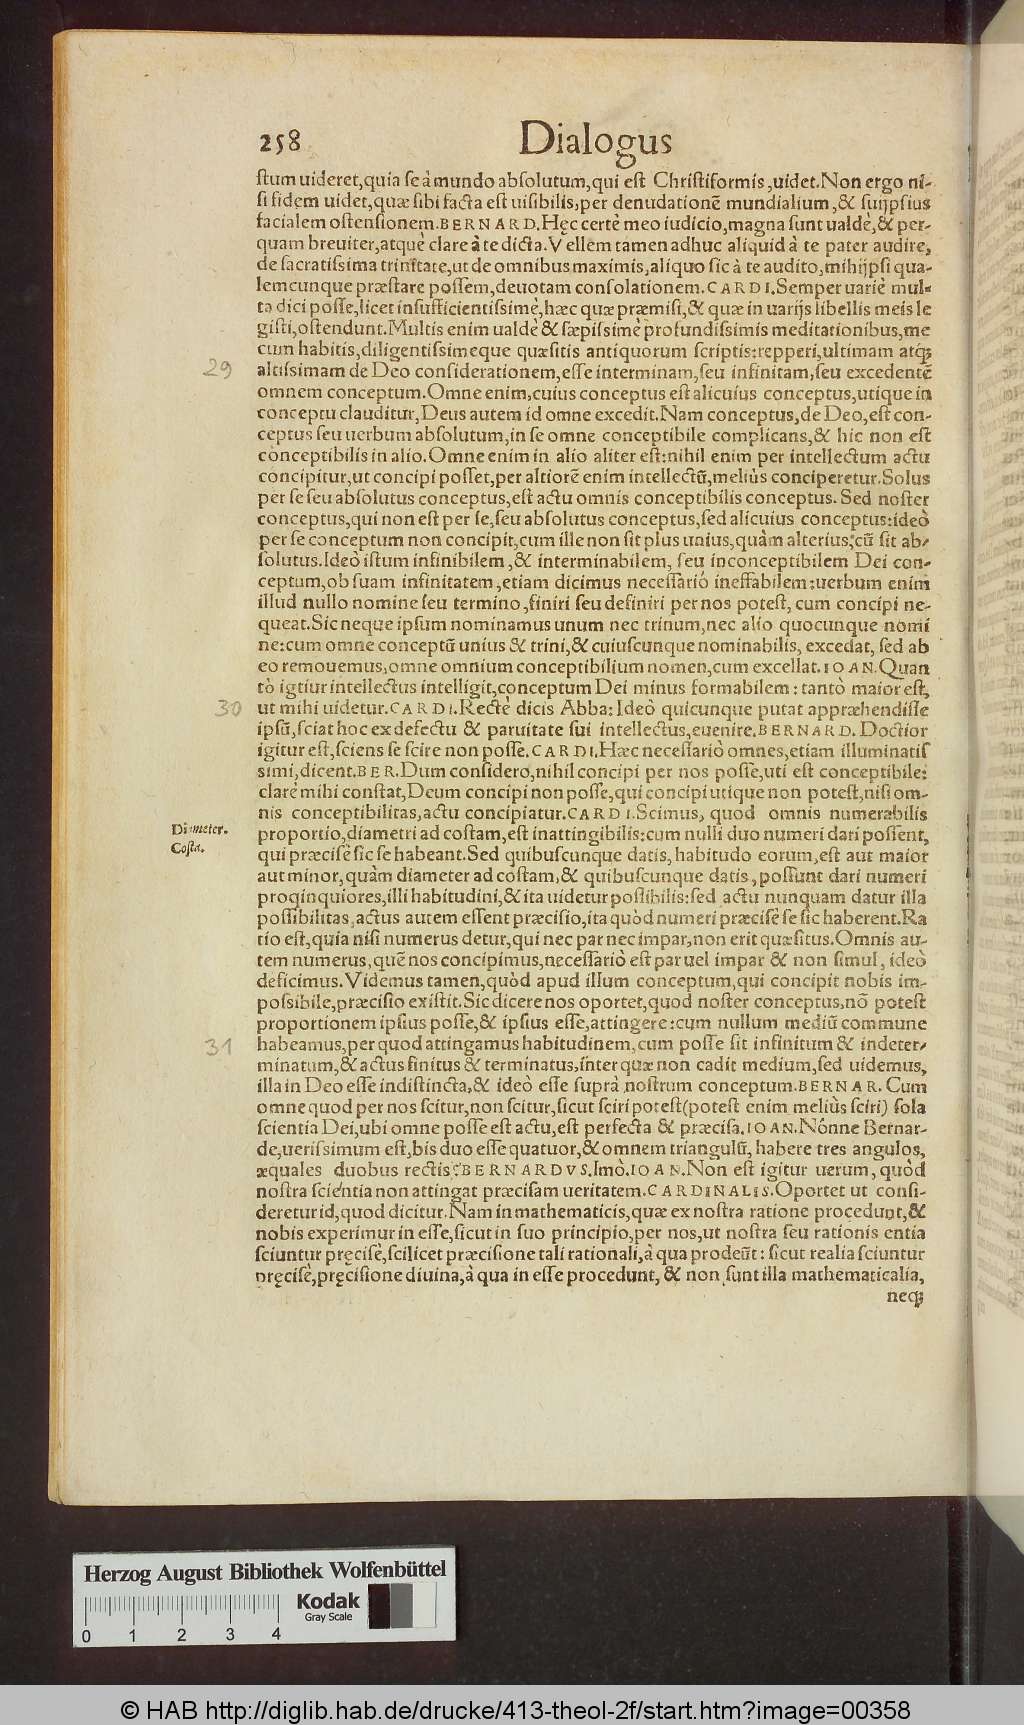 258 Dialogus
stum uideret,quia se à mundo absolutum,qui est Christiformis,uidet.Non ergo ni-
si fidem uidet,quæ sibi facta est uisibilis,per denudationē mundialium,& suiĳpsius
facialem ostensionem.BERNARD.Hęc certè meo iudicio,magna sunt ualdè,& per-
quam breuiter,atquè clare à te dicta.Vellem tamen adhuc aliquid à te pater audire,
de sacratissima trinitate,ut de omnibus maximis,aliquo sic à te audito,mihiĳpsi qua-
lemcunque præstare possem,deuotam consolationem.CARDI.Semper uariè mul-
ta dici posse,licet insufficientissimè,hæc quæ præmisi,& quæ in uarĳs libellis meis le
gisti,ostendunt.Multis enim ualdè & sæpissimè profundissimis meditationibus,me
cum habitis,diligentissimeque quæsitis antiquorum scriptis:repperi,ultimam atq;
29
altissimam de Deo considerationem,esse interminam,seu infinitam,seu excedentē
omnem conceptum.Omne enim,cuius conceptus est alicuius conceptus,utique in
conceptu clauditur,Deus autem id omne excedit.Nam conceptus,de Deo,est con-
ceptus seu uerbum absolutum,in se omne conceptibile complicans,& hic non est
conceptibilis in alio.Omne enim in alio aliter est:nihil enim per intellectum actu
concipitur,ut concipi posset,per altiorē enim intellectū,meliùs conciperetur.Solus
per se seu absolutus conceptus,est actu omnis conceptibilis conceptus. Sed noster
conceptus,qui non est per se,seu absolutus conceptus,sed alicuius conceptus:ideò
per se conceptum non concipit,cum ille non sit plus unius,quàm alterius:cū sit ab-
solutus.Ideò istum infinibilem,& interminabilem, seu inconceptibilem Dei con-
ceptum,ob suam infinitatem,etiam dicimus necessariò ineffabilem:uerbum enim
illud nullo nomine seu termino,finiri seu definiri per nos potest, cum concipi ne-
queat.Sic neque ipsum nominamus unum nec trinum,nec alio quocunque nomi
ne:cum omne conceptū unius & trini,& cuiuscunque nominabilis, excedat, sed ab
eo remouemus,omne omnium conceptibilium nomen,cum excellat.IOAN.Quan
tò igtiur intellectus intelligit,conceptum Dei minus formabilem: tantò maior est,
30
ut mihi uidetur.CARDI.Rectè dicis Abba: Ideò quicunque putat appræhendisse
ipsū,sciat hoc ex defectu & paruitate sui intellectus,euenire.BERNARD. Doctior
igitur est,sciens se scire non posse.CARDI.Hæc necessariò omnes,etiam illuminatis
simi,dicent.BER.Dum considero,nihil concipi per nos posse,uti est conceptibile:
clarè mihi constat,Deum concipi non posse,qui concipi utique non potest,nisi om-
nis conceptibilitas,actu concipiatur.CARDI.Scimus, quod omnis numerabilis
Diameter.
proportio,diametri ad costam,est inattingibilis:cum nulli duo numeri dari possent,
Costa.
qui præcisè sic se habeant.Sed quibuscunque datis,habitudo eorum,est aut maior
aut minor,quàm diameter ad costam,& quibuscunque datis,possunt dari numeri
proginquiores,illi habitudini,& ita uidetur possibilis:sed actu nunquam datur illa
possibilitas,actus autem essent præcisio,ita quòd numeri præcisè se sic haberent.Ra
tio est,quia nisi numerus detur,qui nec par nec impar,non erit quæsitus.Omnis au-
tem numerus,quē nos concipimus,necessariò est par uel impar & non simul, ideò
deficimus.Videmus tamen,quòd apud illum conceptum,qui concipit nobis im-
possibile,præcisio existit.Sic dicere nos oportet,quod noster conceptus,nō potest
proportionem ipsius posse,& ipsius esse,attingere:cum nullum mediū commune
31
habeamus,per quod attingamus habitudinem,cum posse sit infinitum & indeter-
minatum,& actus finitus & terminatus,inter quæ non cadit medium,sed uidemus,
illa in Deo esse indistincta,& ideò esse suprà nostrum conceptum.BERNAR. Cum
omne quod per nos scitur,non scitur,sicut sciri potest(potest enim meliùs sciri) sola
scientia Dei,ubi omne posse est actu,est perfecta & præcisa.IOAN.Nónne Bernar-
de,uerissimum est,bis duo esse quatuor,& omnem triangulū, habere tres angulos,
æquales duobus rectis?BERNARDVS.Imò.IOAN.Non est igitur uerum, quòd
nostra scientia non attingat præcisam ueritatem.CARDINALIS.Oportet ut consi-
deretur id,quod dicitur.Nam in mathematicis,quæ ex nostra ratione procedunt,&
nobis experimur in esse,sicut in suo principio,per nos,ut nostra seu rationis entia
sciuntur pręcisè,scilicet præcisione tali rationali,à qua prodeūt: sicut realia sciuntur
pręcisè,pręcisione diuina,à qua in esse procedunt, & non sunt illa mathematicalia,
neq;
Herzog August Bibliothek Wolfenbüttel
Kodak
Gray Scale
0 1 2 3 4
© HAB http://diglib.hab.de/drucke/413-theol-2f/start.htm?image=00358